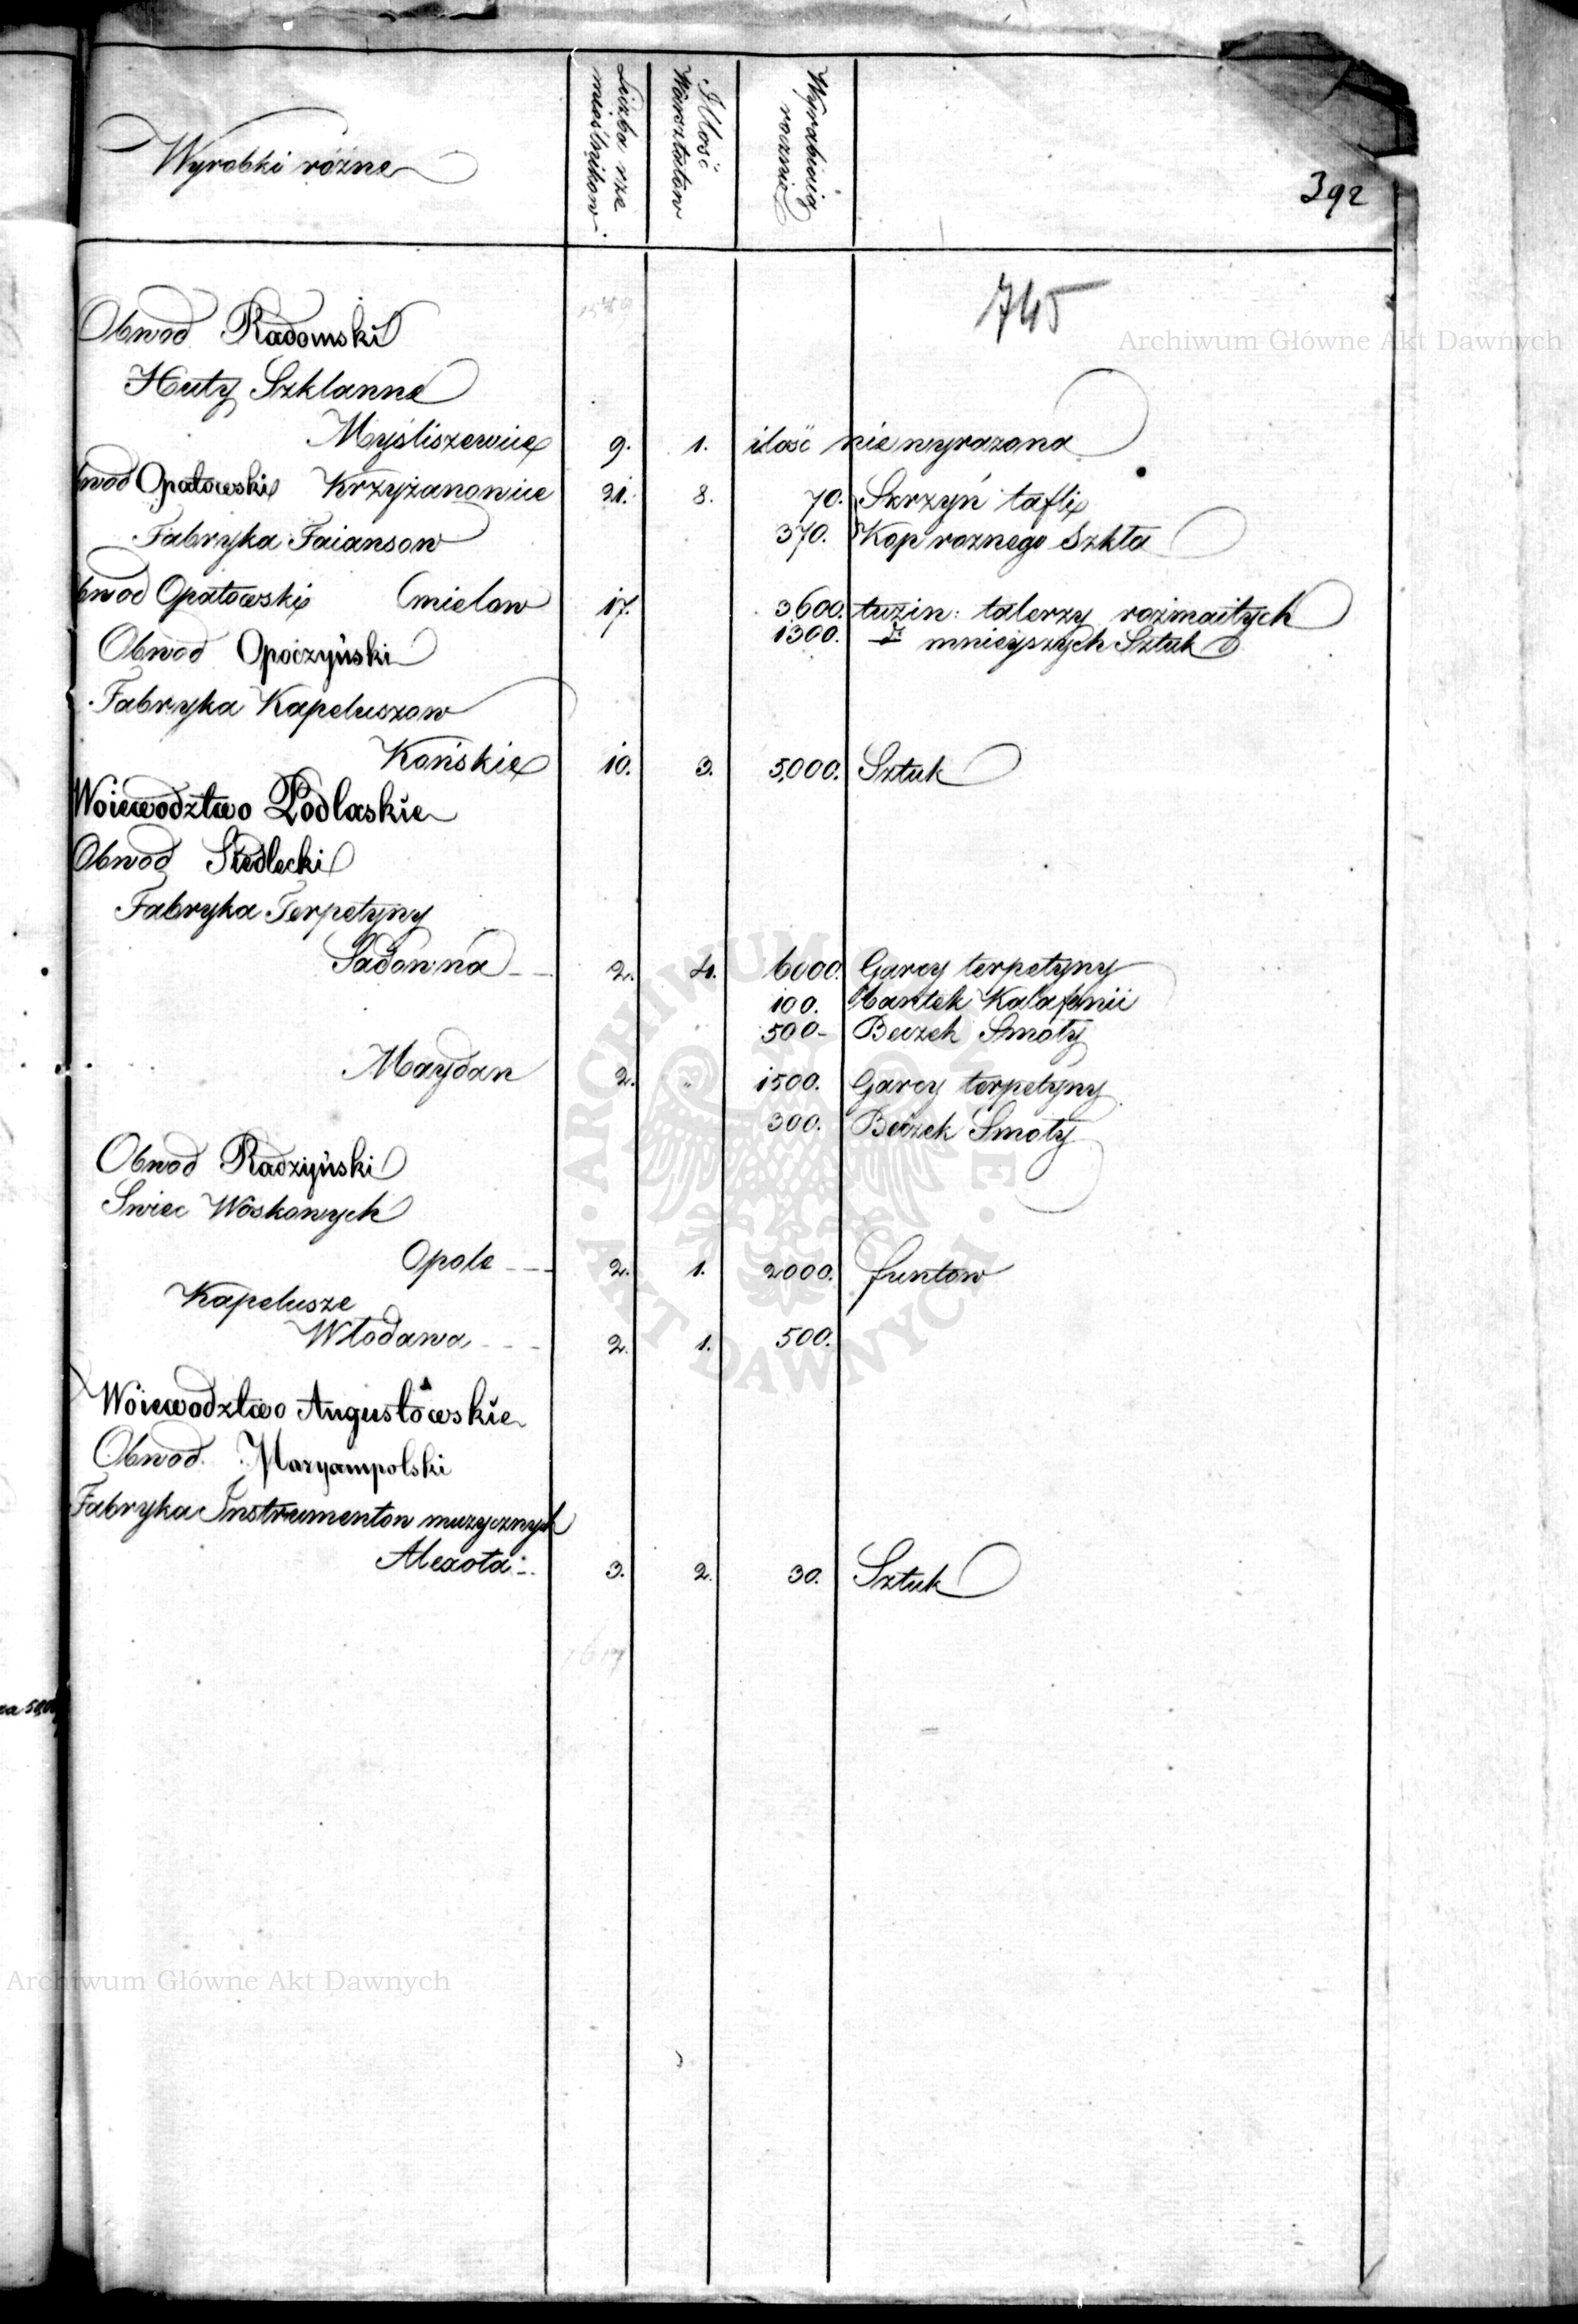 Wyrobki różne
Liczba rze
mieślnikow.
Illość
Warsztatow
Wyrabiaią
rocznie
392
745
Archiwum Główne Akt Dawnych
Obwod Radomski
Huty Szklanne
Myśliszewice 9. 1. ilość nie wyrazona
bwod Opatowski Krzyżanowice 21. 8. 70. Skrzyń tafli
Fabryka Faiansow 370. Kop roznego Szkła
bwod Opatowski Cmielow 17. 3,600. tuzin: talerzy rożmaitych
1300. mnieyszych Sztuk
Obwod Opoczyński
Fabryka Kapeluszow
Końskie 10. 3. 5,000. Sztuk
Woiewodztwo Podlaskie
Obwod Siedlecki
Fabryka Terpetyny
Sadowna 2. 4. 6000. Garcy terpetyny
100. Kalafonii
500 Beczek Smoły
Maydan 2. " 1500. Garcy terpetyny
300. Beczek Smoły
Obwod Radzyński
Swiec Woskowych
Opole 2. 1. 2000. funtow
Kapelusze
Włodawa 2. 1. 500.
Woiewodztwo Augustowskie
Obwod Maryampolski
Fabryka Instrumentow muzycznych
Alexota 3. 2. 30. Sztuk
1617
za 50,00
Archiwum Główne Akt Dawnych
ARCHIWUM
AKT DAWNYCH